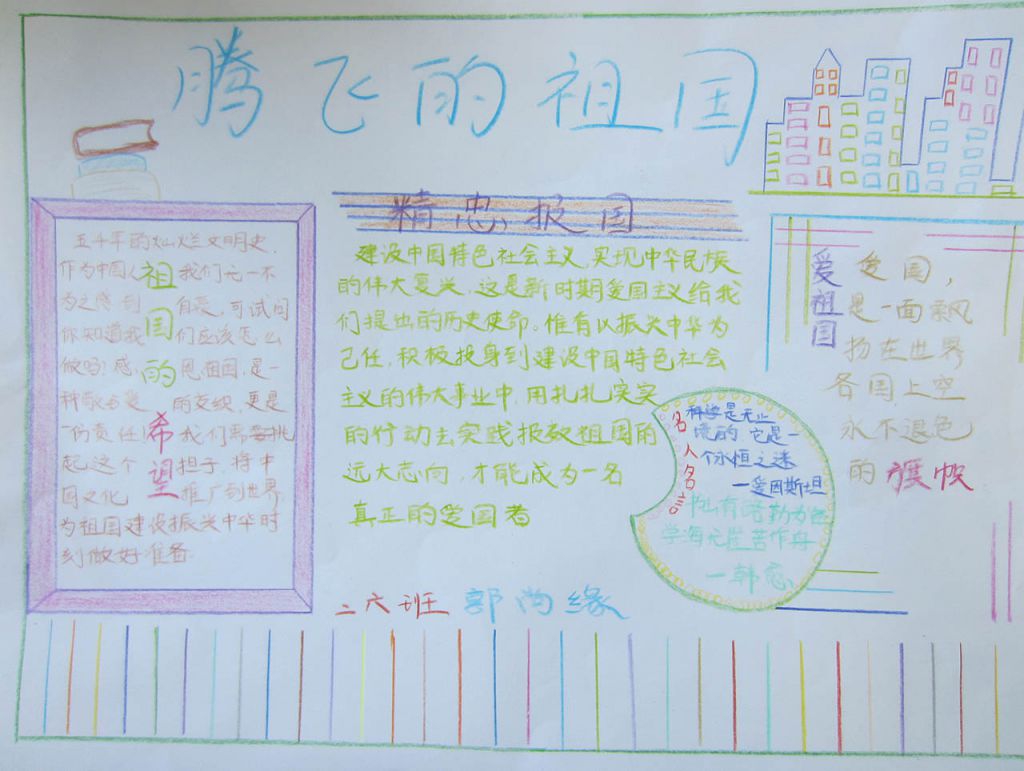 腾飞的祖国
五千年的灿烂文明史,
作为中国人 我们无一不
为之感到 自豪,可试问
你知道我 们应该怎么
做吗?感 恩祖国,是一
的交织,更是
一份责任! 我们需要挑
起这个 担子,将中
国文化 推广到世界,
为祖国建设振兴中华时
刻做好准备
祖国的希望
精忠报国
建设中国特色社会主义,实现中华民族
的伟大复兴,这是新时期爱国主义给我
们提出的历史使命。惟有以振兴中华为
己任,积极投身到建设中国特色社会
主义的伟大事业中,用扎扎实实
的行动去实践报效祖国的
远大志向,才能成为一名
真正的爱国者
名人名言
科学是无止
境的,它是一
个永恒之迷
一爱因斯坦
学海无崖苦作舟
一韩愈
爱祖国
爱国,
是一面飘
扬在世界
各国上空
永不退色
的旗帜
二六班 郭尚缘